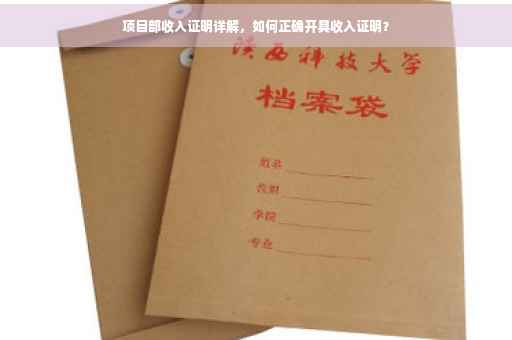 项目部收入证明详解，如何正确开具收入证明？
陕西科技大学
档案袋
姓名
学院
专业